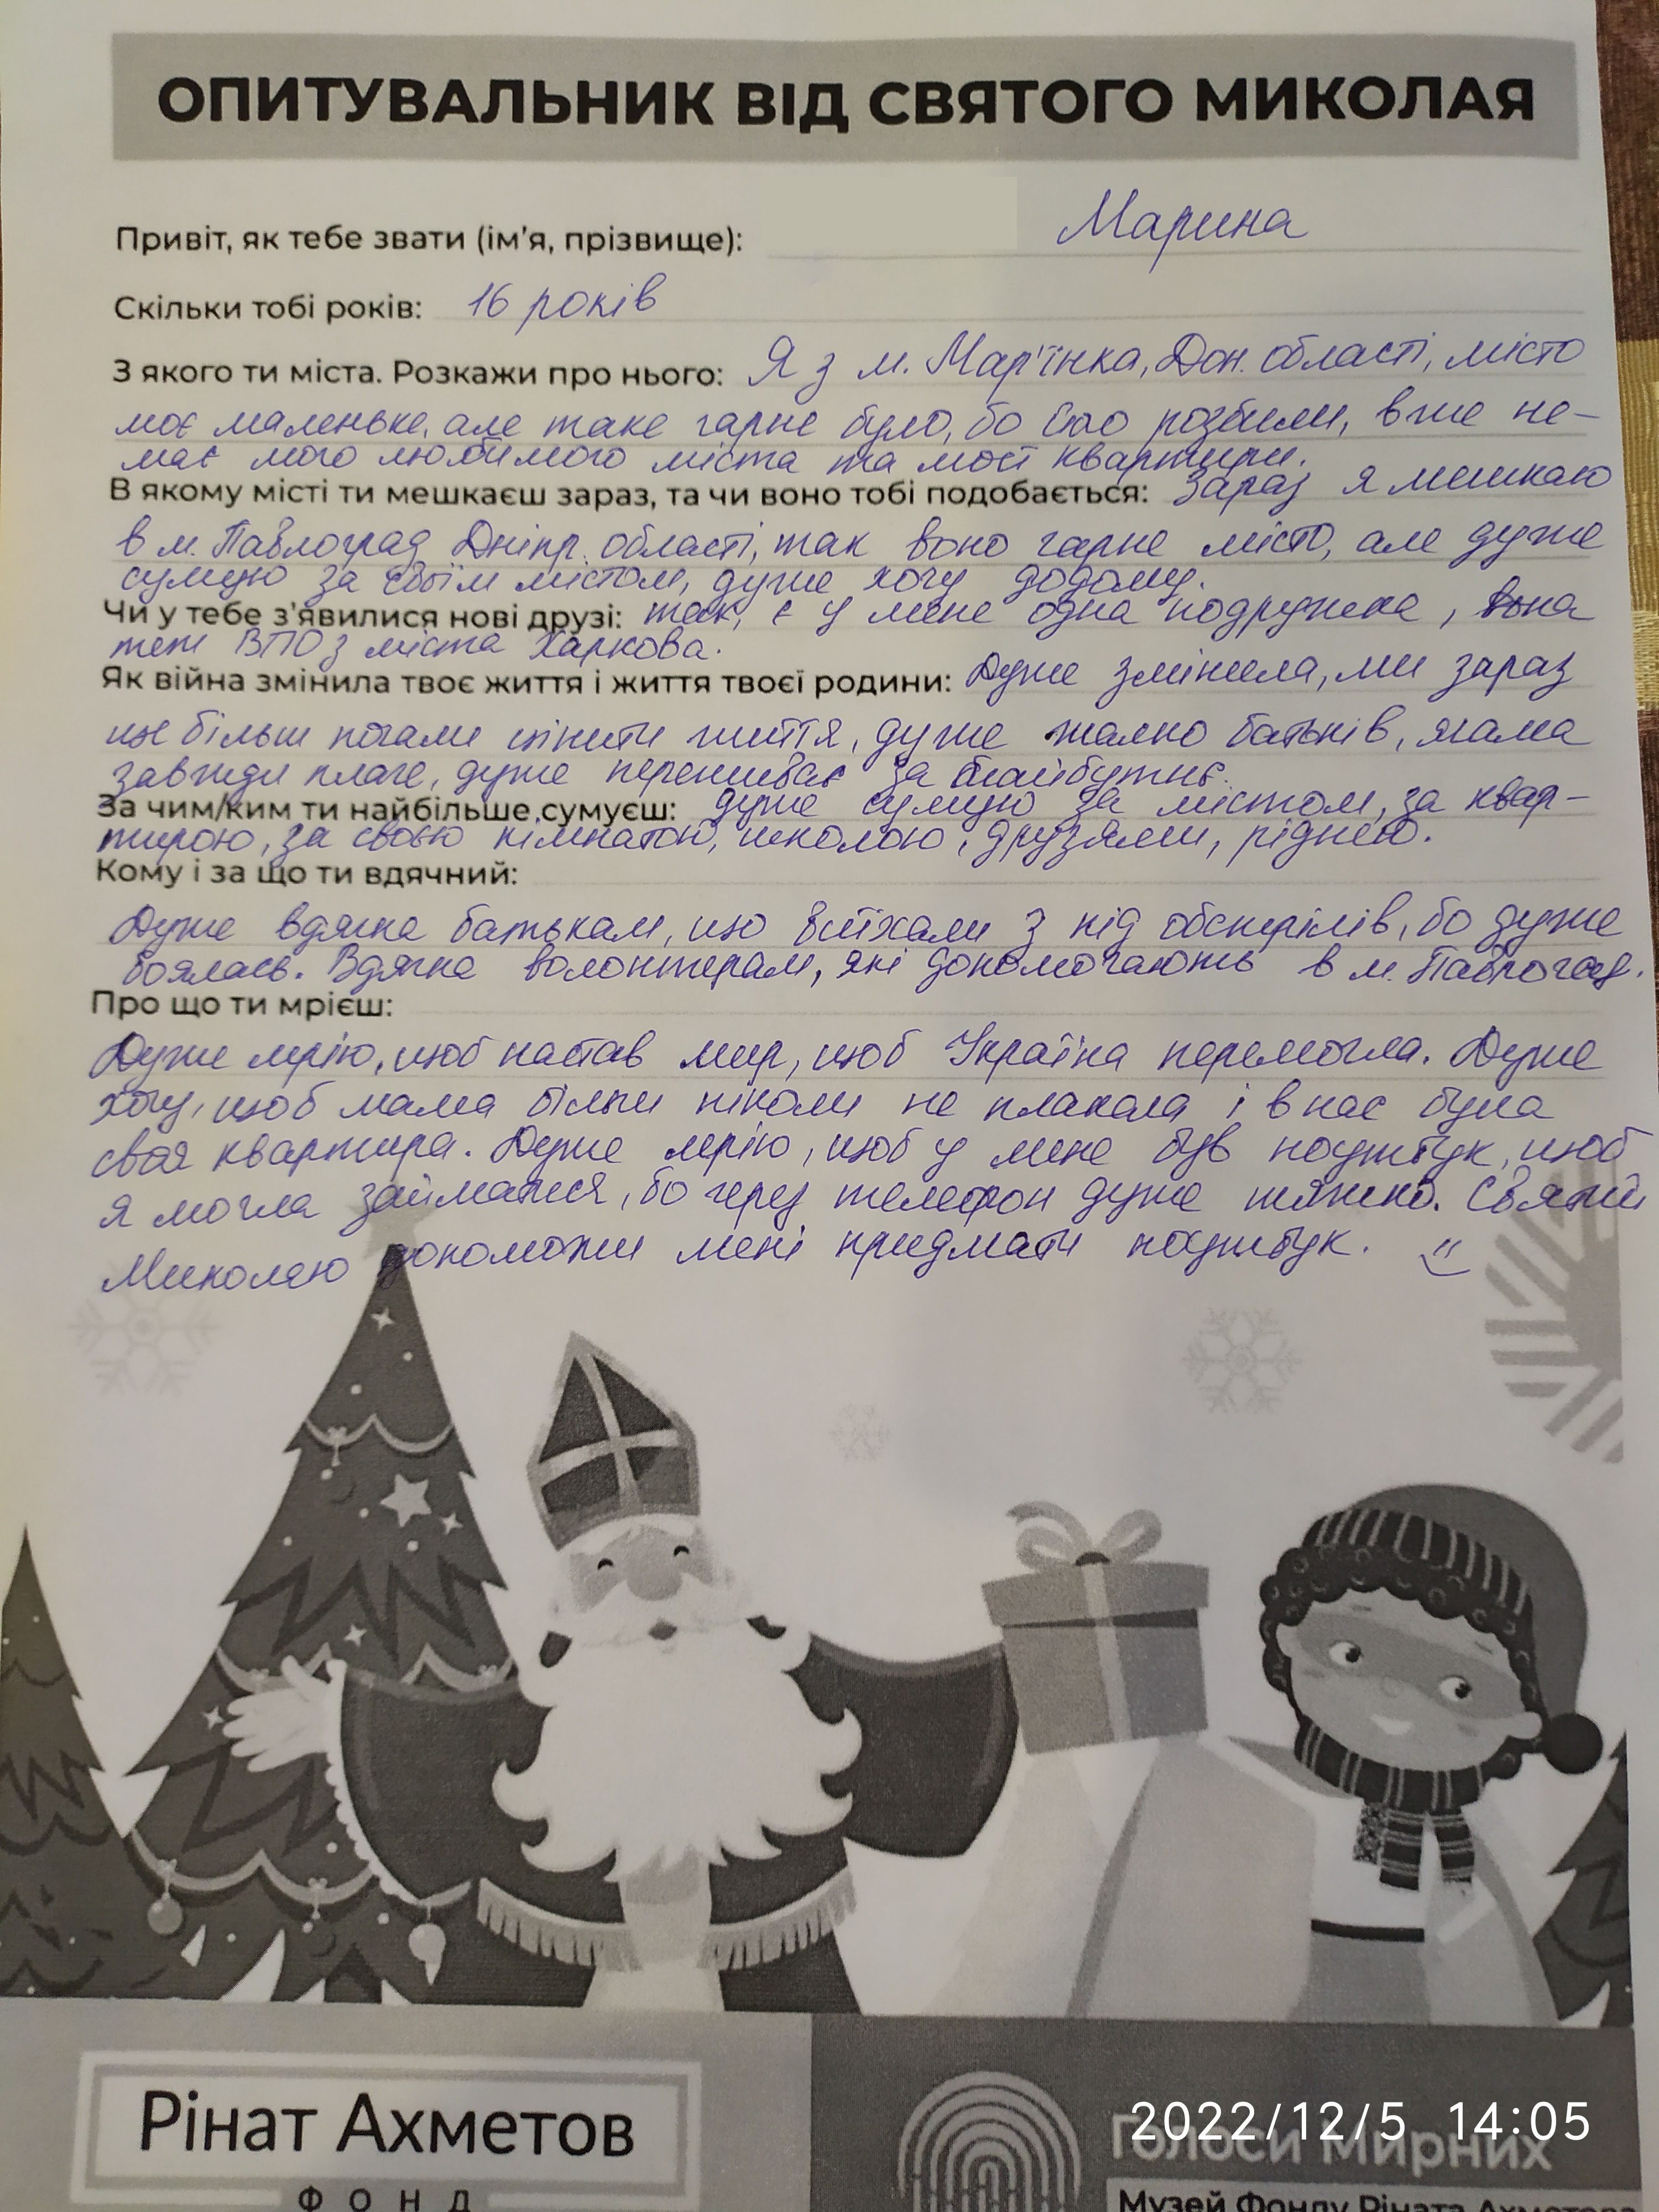 ОПИТУВАЛЬНИК ВІД СВЯТОГО МИКОЛАЯ
Привіт, як тебе звати (ім'я, прізвище): Марина
Скільки тобі років: 16 років
З якого ти міста. Розкажи про нього: Я з м. Мар'їнка, Дон. області, місто
моє маленьке, але таке гарне було, бо його розбили, вже не-
має мого любимого міста та моєї квартири.
В якому місті ти мешкаєш зараз, та чи воно тобі подобається: Зараз я мешкаю
в м. Павлоград Дніпр. області, так воно гарне місто, але дуже
сумую за своїм містом, дуже хочу додому.
Чи у тебе з'явилися нові друзі: так, є у мене одна подружка, вона
теж ВПО з міста Харкова.
Як війна змінила твоє життя і життя твоєї родини: Дуже змінила, ми зараз
ще більш почали цінити життя, дуже жалко батьків, мама
завжди плаче, дуже переживає за майбутнє.
За чим/ким ти найбільше сумуєш: дуже сумую за містом, за квар-
тирою, за своєю кімнатою, школою, друзями, ріднею.
Кому і за що ти вдячний:
Дуже вдячна батькам, що виїхали з під обстрілів, бо дуже
боялась. Вдячна волонтерам, які допомогають в м. Павлоград.
Про що ти мрієш:
Дуже мрію, щоб настав мир, щоб Україна перемогла. Дуже
хочу, щоб мама більш ніколи не плакала і в нас була
своя квартира. Дуже мрію, щоб у мене був ноутбук, щоб
я могла займатися, бо через телефон дуже тяжко. Святий
Миколаю допоможи мені придмати ноутбук.
Рінат Ахметов
ФОНД
2022/12/5 14:05
Голоси Мирних
Музей Фонду Ріната Ахметова